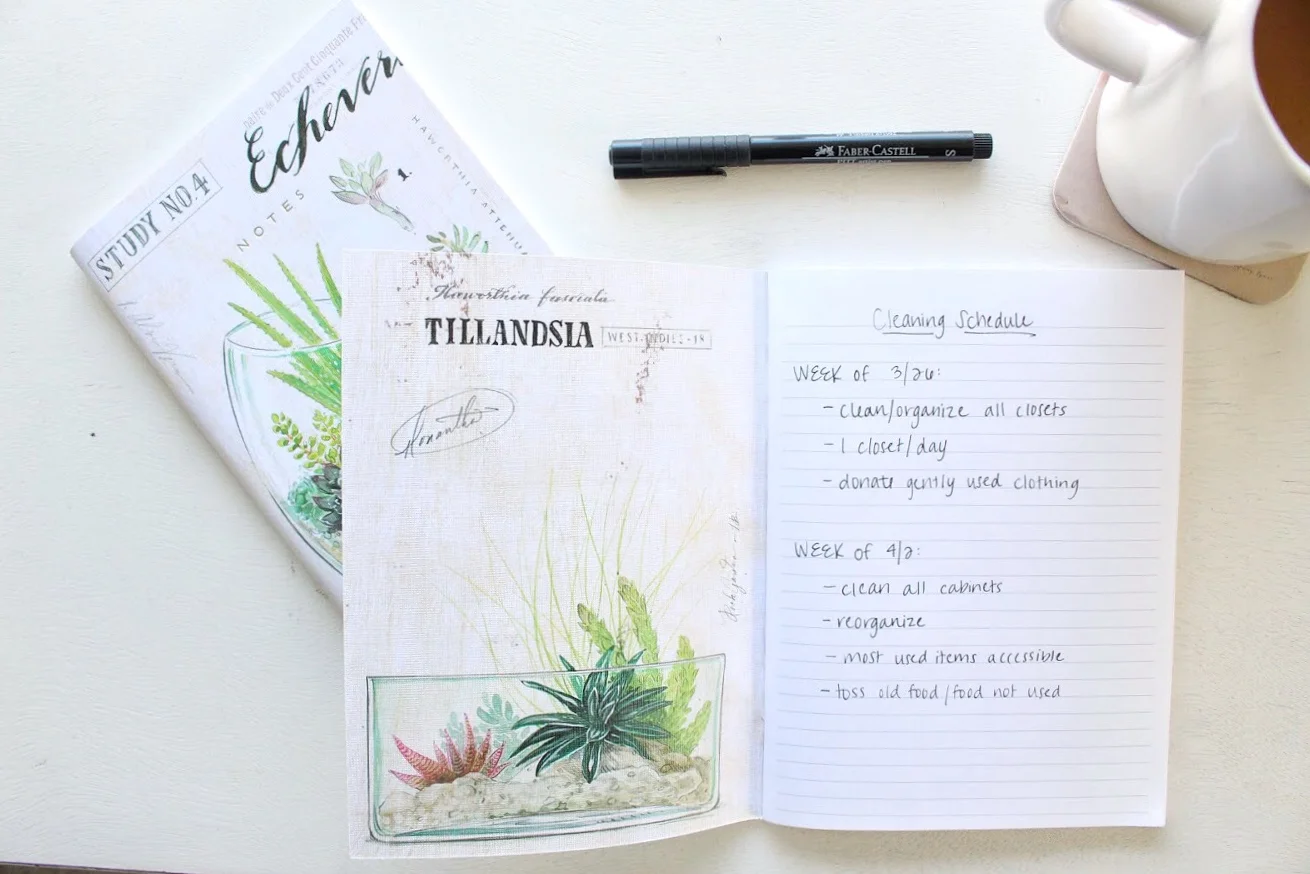 Echever
STUDY NO.4
NOTES
1.
HAWORTHIA ATTENU
FABER-CASTELL
PITT artist pen
S
Haworthia fasciata
TILLANDSIA
WEST-INDIES-18
Cleaning Schedule
WEEK of 3/26:
- clean/organize all closets
- 1 closet/day
- donate gently used clothing
WEEK of 4/2:
- clean all cabinets
- reorganize
- most used items accessible
- toss old food/food not used